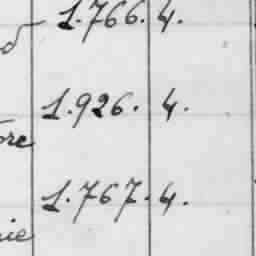 1.766. 4.
1.926. 4.
1.767. 4.